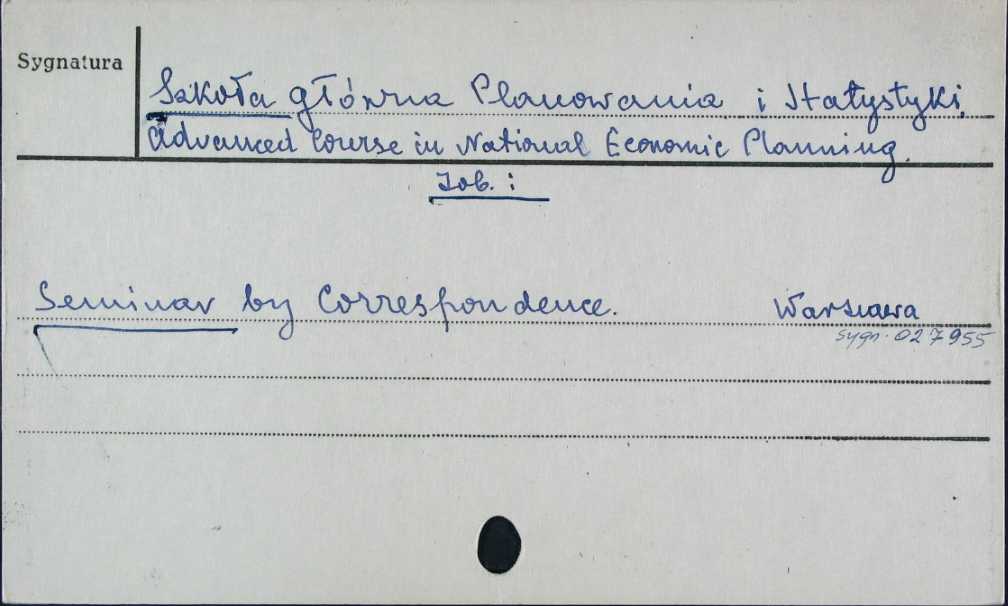 Sygnatura
Szkoła główna Planowania i Statystyki.
Advanced Course in National Economic Planning.
Zob. :
Seminar by Correspondence. Warszawa
sygn. 027955